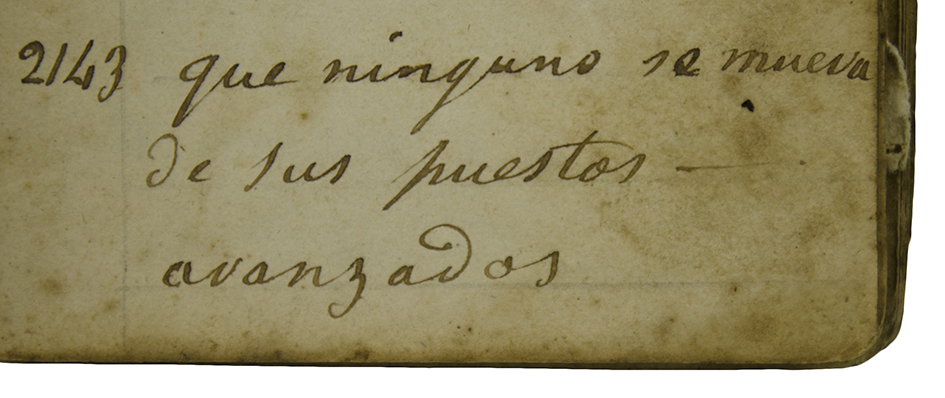 2143 que ninguno se mueva
de sus puestos —
avanzados